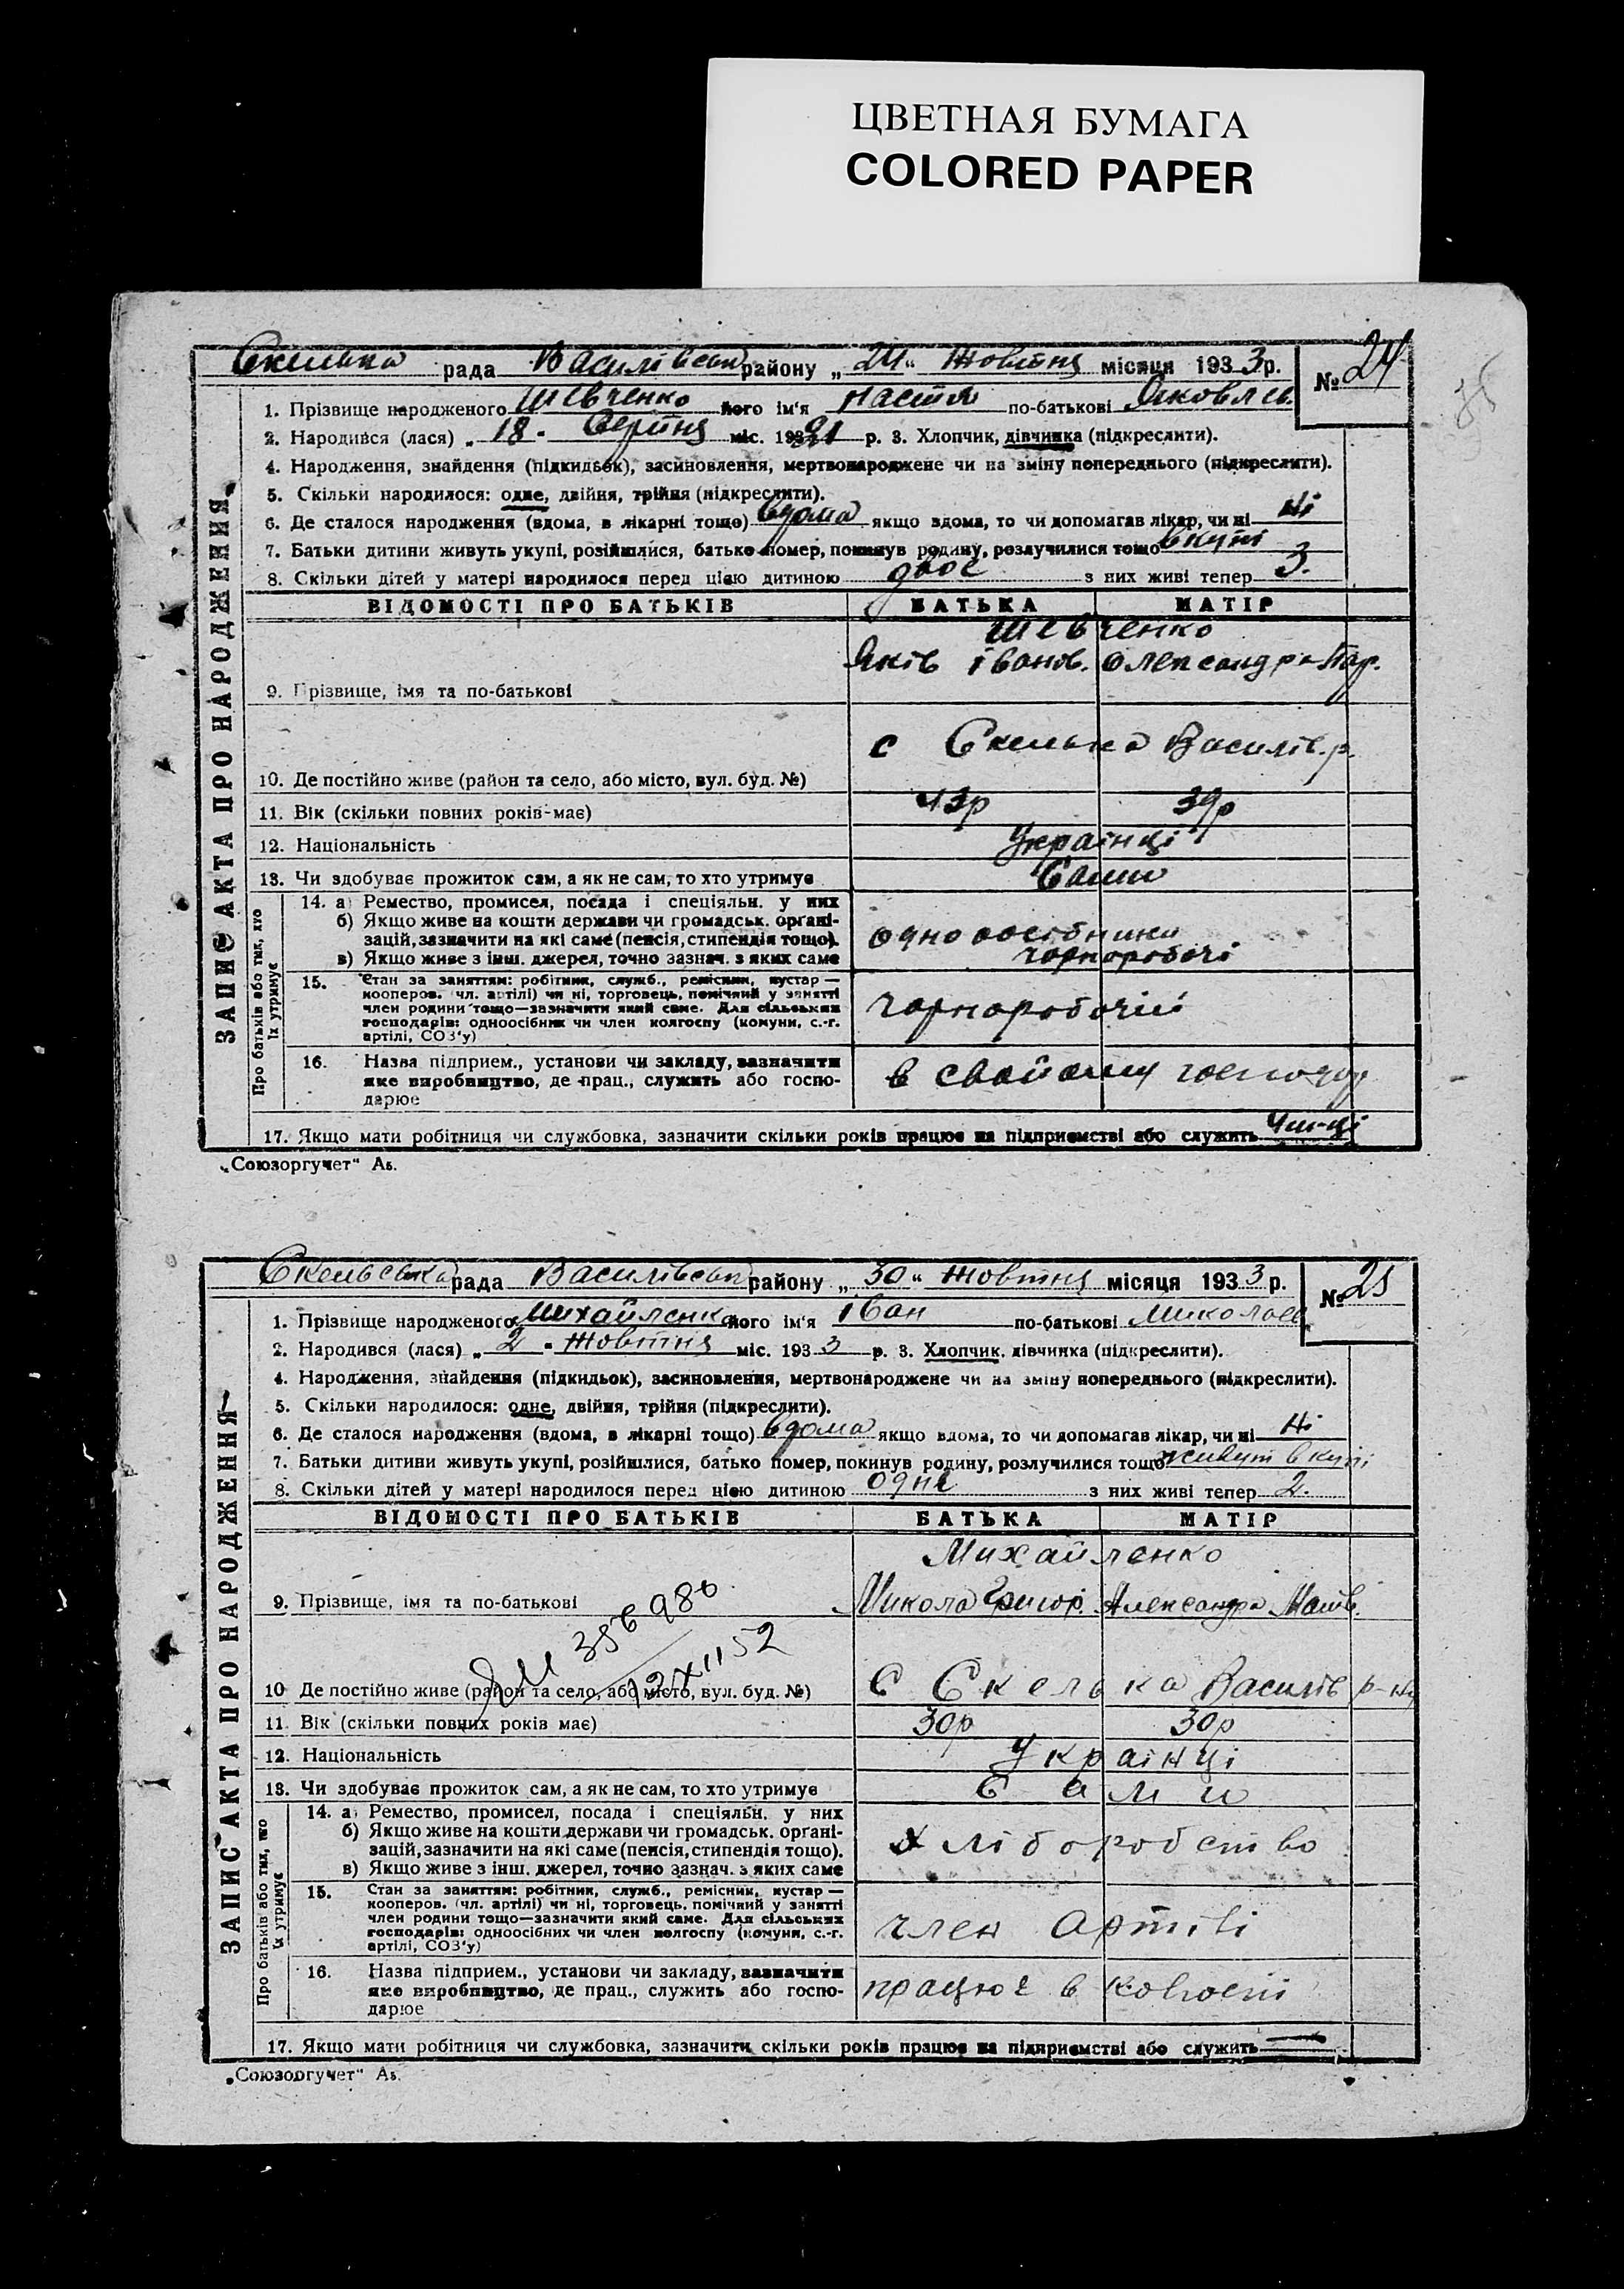 ЦВЕТНАЯ БУМАГА
COLORED PAPER
Скелька рада Василівськ району „24“ Жовтня місяця 1933 р. № 24
1. Прізвище народженого Шевченко його ім'я Настя по-батькові Яковлев.
2. Народився (лася) „18“ Серпня міс. 1921 р. 3. Хлопчик, дівчинка (підкреслити).
4. Народження, знайдення (підкидьок), засиновлення, мертвонароджене чи на зміну попереднього (підкреслити).
5. Скільки народилося: одне, двійня, трійня (підкреслити).
6. Де сталося народження (вдома, в лікарні тощо) вдома якщо вдома, то чи допомагав лікар, чи ні Ні
7. Батьки дитини живуть укупі, розійшлися, батько помер, покинув родину, розлучилися тощо вкупі
8. Скільки дітей у матері народилося перед цією дитиною двоє з них живі тепер 3.
ВІДОМОСТІ ПРО БАТЬКІВ БАТЬКА МАТІР
Шевченко
Яків Іванов. Олександра Пар.
9. Прізвище, імя та по-батькові
с Скелька Василів. р.
10. Де постійно живе (район та село, або місто, вул. буд. №)
11. Вік (скільки повних років має) 43р 39р
12. Національність Українці
13. Чи здобуває прожиток сам, а як не сам, то хто утримує Сами
14. а) Ремество, промисел, посада і спеціяльн. у них
б) Якщо живе на кошти держави чи громадськ. органі-
зацій, зазначити на які саме (пенсія, стипендія тощо).
в) Якщо живе з інш. джерел, точно зазнач. з яких саме
одноосібники
чорноробочі
15. Стан за заняттям: робітник, служб., ремісник, кустар —
кооперов. (чл. артілі) чи ні, торговець, помічний у занятті
член родини тощо—зазначити який саме. Для сільських
господарів: одноосібник чи член колгоспу (комуни, с.-г.
артілі, СОЗ'у)
чорноробочий
16. Назва підприєм., установи чи закладу, зазначити
яке виробництво, де прац., служить або госпо-
дарює
в свойому господар
17. Якщо мати робітниця чи службовка, зазначити скільки років працює на підприємстві або служить
ЗАПИС АКТА ПРО НАРОДЖЕННЯ
Про батьків або тих, хто
їх утримує
„Союзоргучет“ Аб.
Скельська рада Василівськ району „30“ Жовтня місяця 1933 р. № 25
1. Прізвище народженого Михайленко його ім'я Іван по-батькові Миколаєв
2. Народився (лася) „2“ Жовтня міс. 1933 р. 3. Хлопчик, дівчинка (підкреслити).
4. Народження, знайдення (підкидьок), засиновлення, мертвонароджене чи на зміну попереднього (підкреслити).
5. Скільки народилося: одне, двійня, трійня (підкреслити).
6. Де сталося народження (вдома, в лікарні тощо) вдома якщо вдома, то чи допомагав лікар, чи ні Ні
7. Батьки дитини живуть укупі, розійшлися, батько помер, покинув родину, розлучилися тощо живут вкупі
8. Скільки дітей у матері народилося перед цією дитиною одне з них живі тепер 2.
ВІДОМОСТІ ПРО БАТЬКІВ БАТЬКА МАТІР
Михайленко
9. Прізвище, імя та по-батькові Микола Григор. Александра Матв.
356980
12 X 1152
10 Де постійно живе (район та село, або місто, вул. буд. №) С Скелька Василів р-ну
11. Вік (скільки повних років має) 30р 30р
12. Національність Українці
13. Чи здобуває прожиток сам, а як не сам, то хто утримує Сами
14. а) Ремество, промисел, посада і спеціяльн. у них
б) Якщо живе на кошти держави чи громадськ. органі-
зацій, зазначити на які саме (пенсія, стипендія тощо).
в) Якщо живе з інш. джерел, точно зазнач. з яких саме
хліборобство
15. Стан за заняттям: робітник, служб., ремісник, кустар —
кооперов. (чл. артілі) чи ні, торговець, помічний у занятті
член родини тощо—зазначити який саме. Для сільських
господарів: одноосібних чи член колгоспу (комуни, с.-г.
артілі, СОЗ'у)
член Артілі
16. Назва підприєм., установи чи закладу, зазначити
яке виробництво, де прац., служить або госпо-
дарює
працює в колгоспі
17. Якщо мати робітниця чи службовка, зазначити скільки років працює на підприємстві або служить
ЗАПИС АКТА ПРО НАРОДЖЕННЯ
Про батьків або тих, хто
їх утримує
„Союзоргучет“ Аб.